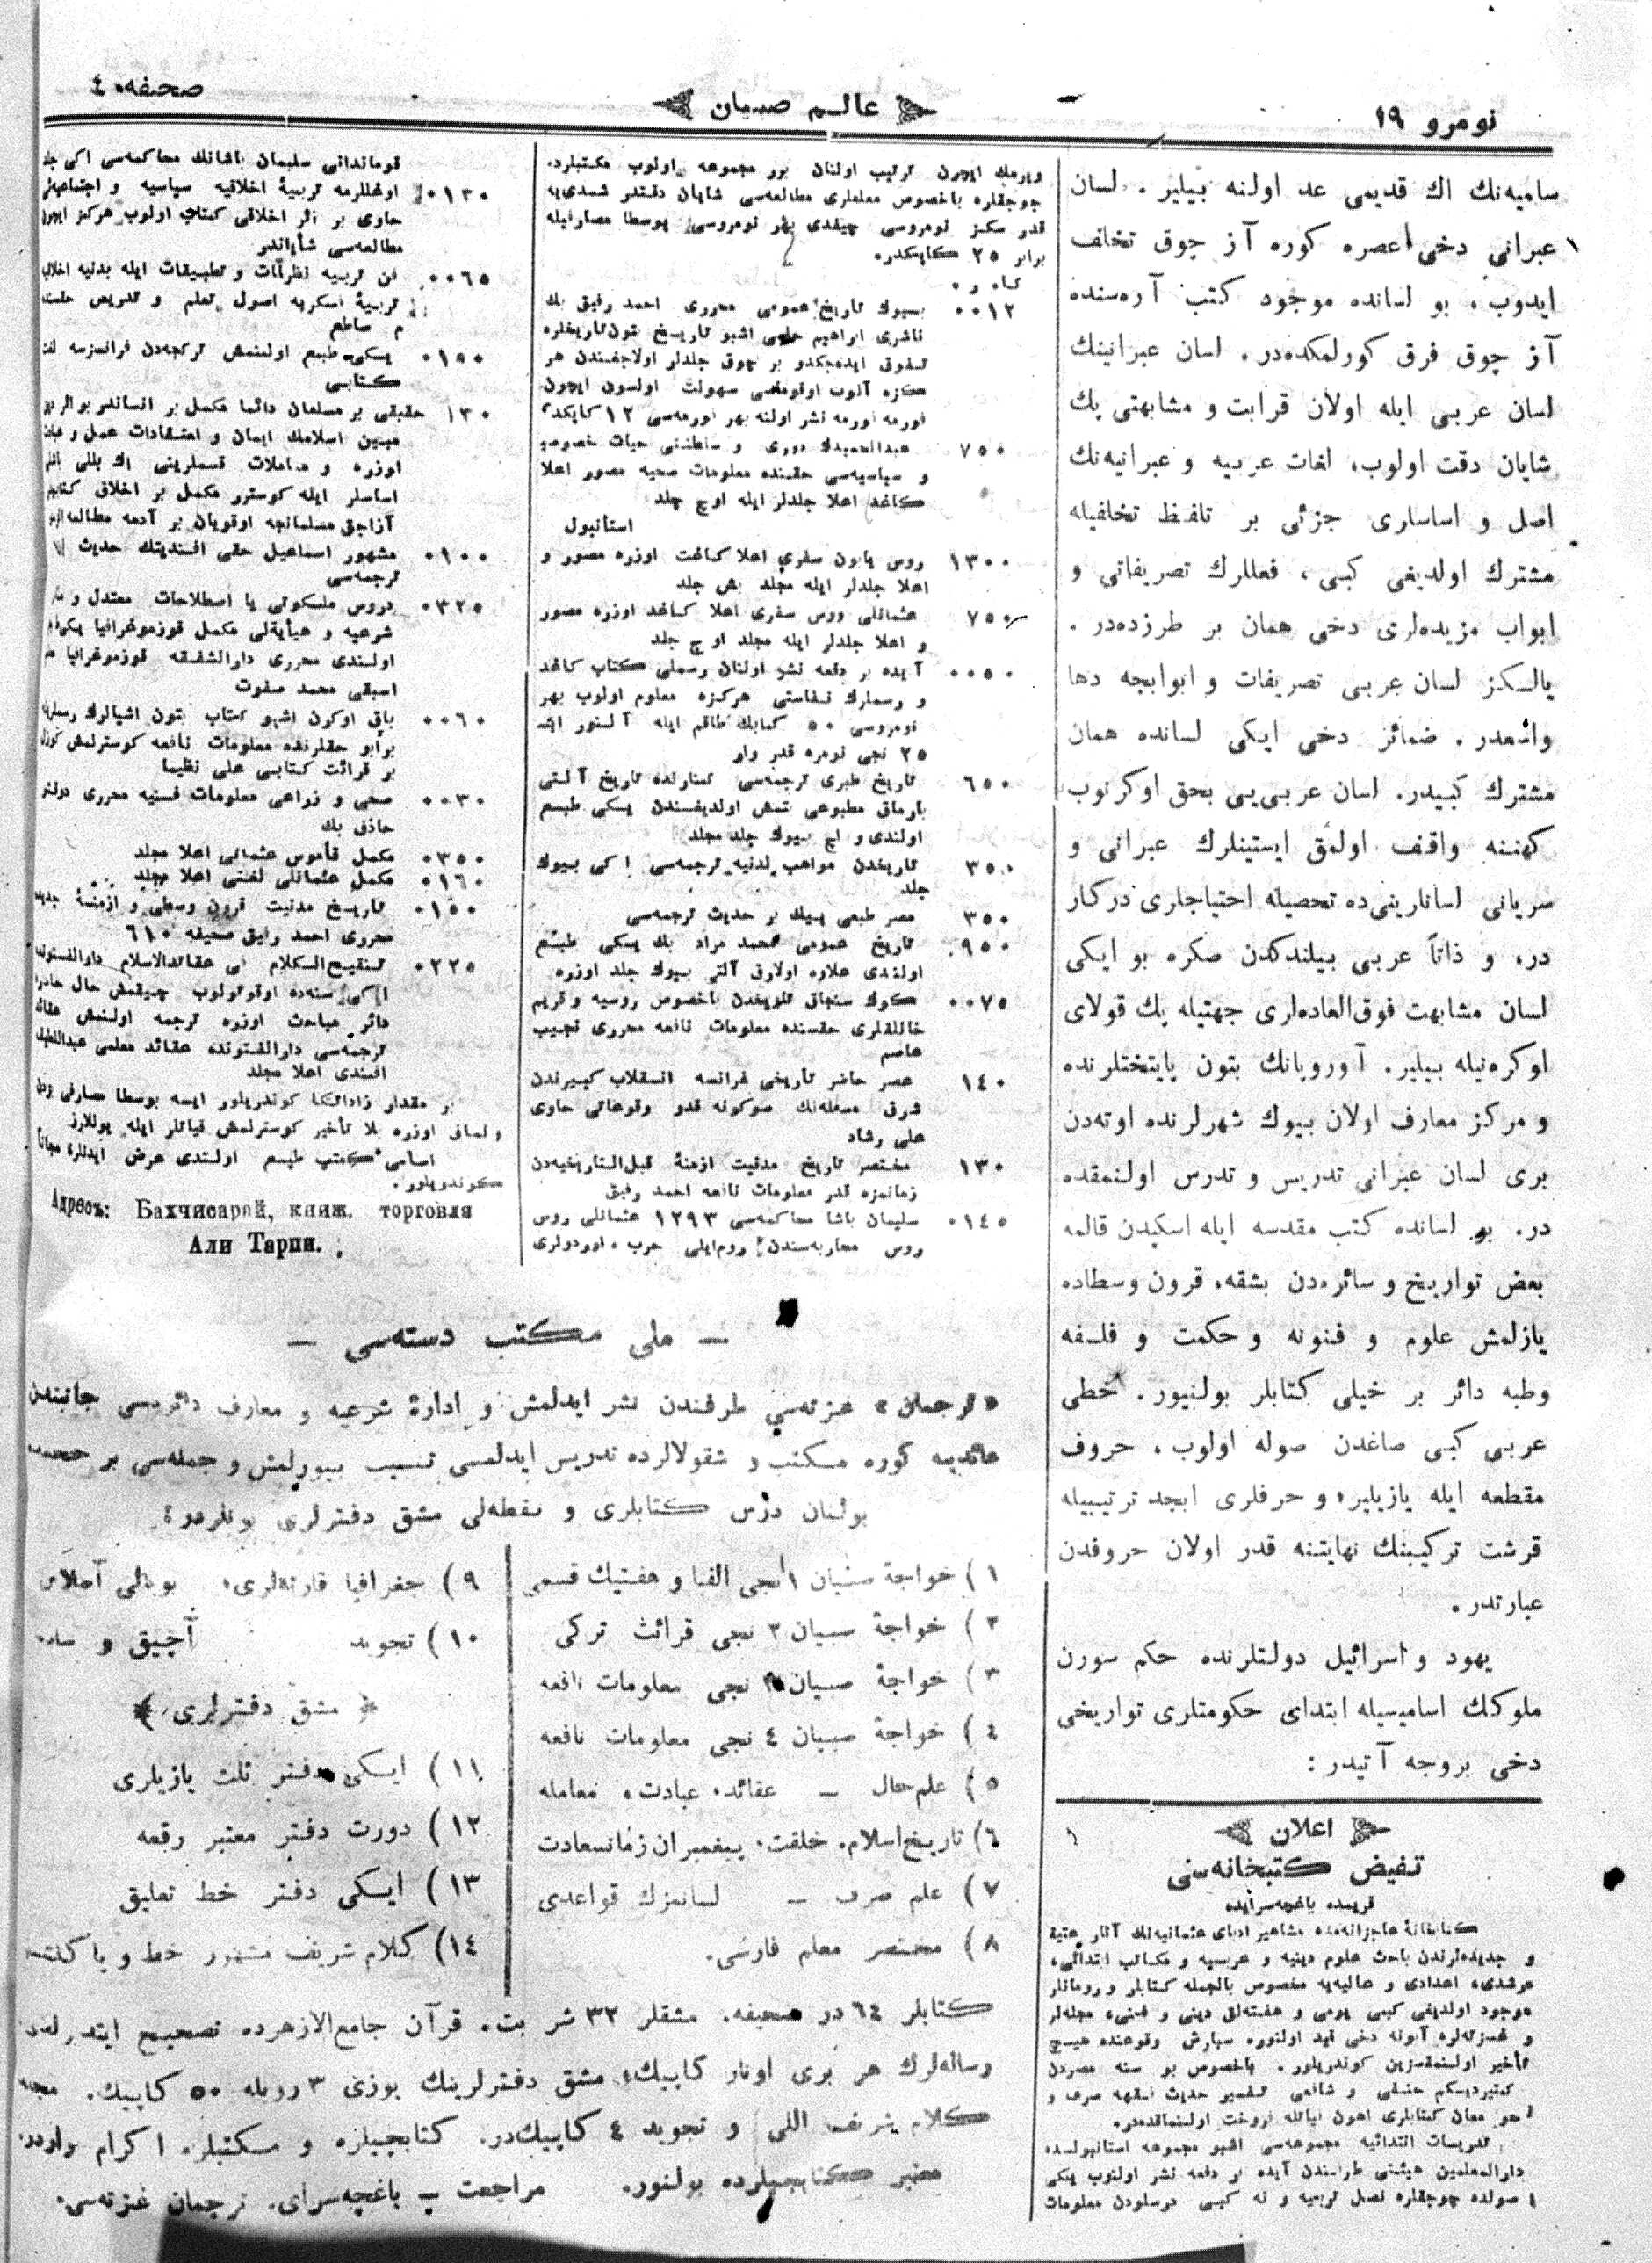 نومرو ١٩
عالم صبيان
صحيفه ٤
ساميه‌نك اك قديمى عد اولنه بيلير . لسان
عبرانى دخى اعصره كوره آز چوق تخالف
ايدوب، بو لسانده موجود كتب آره‌سنده
آز چوق فرق كورلمكده‌در . لسان عبرانينك
لسان عربى ايله اولان قرابت و مشابهتى پك
شايان دقت اولوب، لغات عربيه و عبرانيه‌نك
اصل و اساسارى جزئى بر تلفظ تخالفيله
مشترك اولديغى كبى ، فعللرك تصريفاتى و
ابواب مزيده‌لرى دخى همان بر طرزده‌در .
يالكز لسان عربى تصريفات و ابوابجه دها
واسعدر . ضمائر دخى ايكى لسانده همان
مشترك كبيدر. لسان عربى‌يى بحق اوكرنوب
كهننه واقف اولمق ايستينلرك عبرانى و
سريانى لسانارينى‌ده تحصيله احتياجلارى دركار
در، و ذاتاً عربى بيلندكدن صكره بو ايكى
لسان مشابهت فوق‌العاده‌لرى جهتيله پك قولاى
اوكره‌نيله بيلير. آوروپانك بتون پايتختلرنده
و مركز معارف اولان بيوك شهرلرنده اوته‌دن
برى لسان عبرانى تدريس و تدرس اولنمقده
در. بو لسانده كتب مقدسه ايله اسكيدن قالمه
بعض تواريخ و سائره‌دن بشقه، قرون وسطاده
يازلمش علوم و فنونه و حكمت و فلسفه
وطبه دائر بر خيلى كتابلر بولنيور. خطى
عربى كبى صاغدن صوله اولوب، حروف
مقطعه ايله يازيلير، و حرفلرى ابجد ترتيبيله
قرشت تركيبنك نهايتنه قدر اولان حروفدن
عبارتدر .
يهود و اسرائيل دولتلرنده حكم سورن
ملوكك اساميسيله ابتداى حكومتلرى تواريخى
دخى بروجه آتيدر :
اعلان
تفيض كتبخانه‌سى
قريمده باغچه‌سرايده
كتابخانهٔ عاجزانه‌مده مشاهير ادباى عثمانيه‌نك آثار عتيقه
و جديده‌لرندن باحث علوم دينيه و عربيه و مكاتب ابتدائى،
رشدى، اعدادى و عاليه‌يه مخصوص بالجمله كتابلر و رومانلر
موجود اولديغى كبى يومى و هفته‌لق دينى و فنى، مجله‌لر
و غزته‌لره آبونه دخى قيد اولنوره سپارش وقوعنده هيچ
تأخير اولنمقسزين كوندريلور . باخصوص بو سنه مصردن
حنفى و شافعى تفسير حديث فقه صرف و
نحو معان كتابلرى اهون فيأتله فروخت اولنماقده‌در.
تدريسات ابتدائيه مجموعه‌سى اشبو مجموعه استانبولده
دارالمعلمين هيئتى طرفندن آيده بر دفعه نشر اولنوب يكى
اصولده چوجقلره نصل تربيه و نه كبى درسلردن معلومات
ويرمك ايچون ترتيب اولنان برر مجموعه اولوب مكتبلرده
چوجقلره باخصوص معلملرى مطالعه‌سى شايان دقتدر شمدى‌يه
قدر سكز نومروسى چيقدى بهر نومروسى پوسطا مصارفيله
برابر ٢٥ كاپيكدر.
٠٠١٢ بيوك تاريخ عمومى محررى احمد رفيق بك
ناشرى ابراهيم حلمى اشبو تاريخ بتون تاريخلره
تفوق ايده‌جكدر بر چوق جلدلر اولاجغندن هر
كزه آلوب اوقومسى سهولت اولسون ايچون
فورمه فورمه نشر اولنه بهر فورمه‌سى ١٢ كاپكدر
٧٥٠ عبدالحميدك دورى و سلطنتى حيات خصوصيه
و سياسيه‌سى حقنده معلومات صحيه مصور اعلا
كاغد اعلا جلدلر ايله اوچ جلد
استانبول
١٣٠٠ روس ياپون سفرى اعلا كاغد اوزره مصور و
اعلا جلدلر ايله مجلد بش جلد
٧٥٠ عثمانلى روس سفرى اعلا كاغد اوزره مصور
و اعلا جلدلر ايله مجلد اوچ جلد
٠٠٥٠ آيده بر دفعه نشر اولنان رسملى كتاب كاغد
و رسملرك نفاستى هركزه معلوم اولوب بهر
نومروسى ٥٠ كاپك طاقم ايله آلنور ايسه
٢٥ نجى نومره قدر وار
٦٥٠ تاريخ طبرى ترجمه‌سى كنارلنده تاريخ آلتى
پارماق مطبوعى بتمش اولديغندن يكى طبع
اولندى و اوچ بيوك جلد مجلد
٣٥٠ تاريخدن مواهب لدنيه ترجمه‌سى ايكى بيوك
جلد
٣٥٠ مصر طبعى بيك بر حديث ترجمه‌سى
٩٥٠ تاريخ عمومى محمد مراد بك يكى طبع
اولندى علاوه اولارق آلتى بيوك جلد اوزره
٠٠٧٥ كوك سنجاق تاريخدن باخصوص روسيه و قريم
خانلقلرى حقنده معلومات نافعه محررى نجيب
عاصم
١٤٠ عصر حاضر تاريخى فرانسه انقلاب كبيرندن
شرق مسئله‌نك صوكونه قدر وقوعاتى حاوى
على رشاد
١٣٠ مختصر تاريخ مدنيت ازمنهٔ قبل‌التاريخيه‌دن
زمانمزه قدر معلومات نافعه احمد رفيق
٠١٤٥ سليمان پاشا محاكمه‌سى ١٢٩٣ عثمانلى روس
روس محاربه‌سندن روم‌ايلى حرب اوردولرى
قوماندانى سليمان پاشانك محاكمه‌سى ايكى جلد
٠١٣٠ اوغللرمه تربيهٔ اخلاقيه سياسيه و اجتماعيه‌يى
حاوى بر اثر اخلاقى كتاب اولوب هركز ايچون
مطالعه‌سى شاياندر
٠٠٦٥ فن تربيه نظريات و تطبيقات ايله بدنيه اخلاق
تربيهٔ فكريه اصول تعلم و تدريس
م ساطع
٠١٩٠ يكى طبع اولنمش تركجه‌دن فرانسزجه لغت
كتابى
١٣٠ حقيقى بر مسلمان دائما مكمل بر انساندر
مبين اسلامك ايمان و اعتقادات عمل و عبادات
اوزره و معاملات قسملرينى اك بللى باشلى
اساسلر ايله كوسترر مكمل بر اخلاق كتابيدر
آزاجق مسلمانچه اوقويان بر آدمه مطالعه
٠١٠٠ مشهور اسماعيل حقى افندينك حديث
ترجمه‌سى
٠٣٢٥ دروس ملكوتى يا اسطلاحات معتدل و
شرعيه و هيأيه‌لى مكمل قوزموغرافيا
اولندى محررى دارالشفقه قوزموغرافيا
اسبقى محمد صفوت
٠٠٦٠ باق اوكرن اشبو كتاب بتون اشيالرك رسملريله
برابر حقلرنده معلومات نافعه كوسترلمش كوزل
بر قرائت كتابى على نظيما
٠٠٣٠ صحى و زراعى معلومات فنيه محررى دوقتور
حاذق بك
٠٣٥٠ مكمل قاموس عثمانى اعلا مجلد
٠١٦٠ مكمل عثمانلى لغتى اعلا مجلد
٠١٥٠ تاريخ مدنيت قرون وسطى و ازمنهٔ جديده
محررى احمد رفيق صحيفه ٦١٠
٠٢٢٥ تنقيح‌الكلام فى عقائدالاسلام دارالفنونده
ايكى سنه‌ده اوقوتولوب چيقمش حال حاضره
دائر مباحث اوزره ترجمه اولنمش عقائد
ترجمه‌سى دارالفنونده عقائد معلمى عبداللطيف
افندى اعلا مجلد
بر مقدار زاداتكا كوندريلور ايسه پوسطا مصارفى بزدن
اولماق اوزره بلا تأخير كوسترلمش قياتلر ايله يوللارز
اسامى كتب طبع اولندى عرض ايدنلره مجاناً
كوندريلور .
Адресъ: Бахчисарай, книж. торговля
Али Тарпи.
— ملى مكتب دسته‌سى —
«ترجمان» غزته‌سى طرفندن نشر ايدلمش و ادارهٔ شرعيه و معارف دائره‌سى جانبندن
معاينه كوره مكتب و شقولالرده تدريس ايدلمسى تنسيب بيورلمش و جمله‌سى بر
بولنان درس كتابلرى و نقطه‌لى مشق دفترلرى بونلردر:
١) خواجهٔ صبيان ١نجى الفبا و هفتيك قسمى
٢) خواجهٔ صبيان ٢ نجى قرائت تركى
٣) خواجهٔ صبيان ٣ نجى معلومات نافعه
٤) خواجهٔ صبيان ٤ نجى معلومات نافعه
٥) علم حال — عقائد، عبادت، معامله
٦) تاريخ اسلام، خلقت، پيغمبران زمانسعادت
٧) علم صرف — لسانمزك قواعدى
٨) مختصر معلم فارسى.
٩) جغرافيا قارته‌لرى، بويالى آطلاس
١٠) تجويد آچيق و ساده
﴿ مشق دفترلرى ﴾
١١) ايكى دفتر ثلث يازيلرى
١٢) دورت دفتر معتبر رقعه
١٣) ايكى دفتر خط تعليق
١٤) كلام شريف مشهور خط و پاكلته
كتابلر ٦٤ در صحيفه. مشقلر ٣٢ شر بت. قرآن جامع‌الازهرده تصحيح ايتدرلمشدر
رساله‌لرك هر برى اونار كاپيك، مشق دفترلرينك يوزى ٣ روبله ٥٠ كاپيك.
كلام شريف اللى و تجويد ٤ كاپيك‌در. كتابجيلره و مكتبلره اكرام واردر.
معتبر كتابجيلرده بولنور. مراجعت — باغچه‌سراى. ترجمان غزته‌سى.